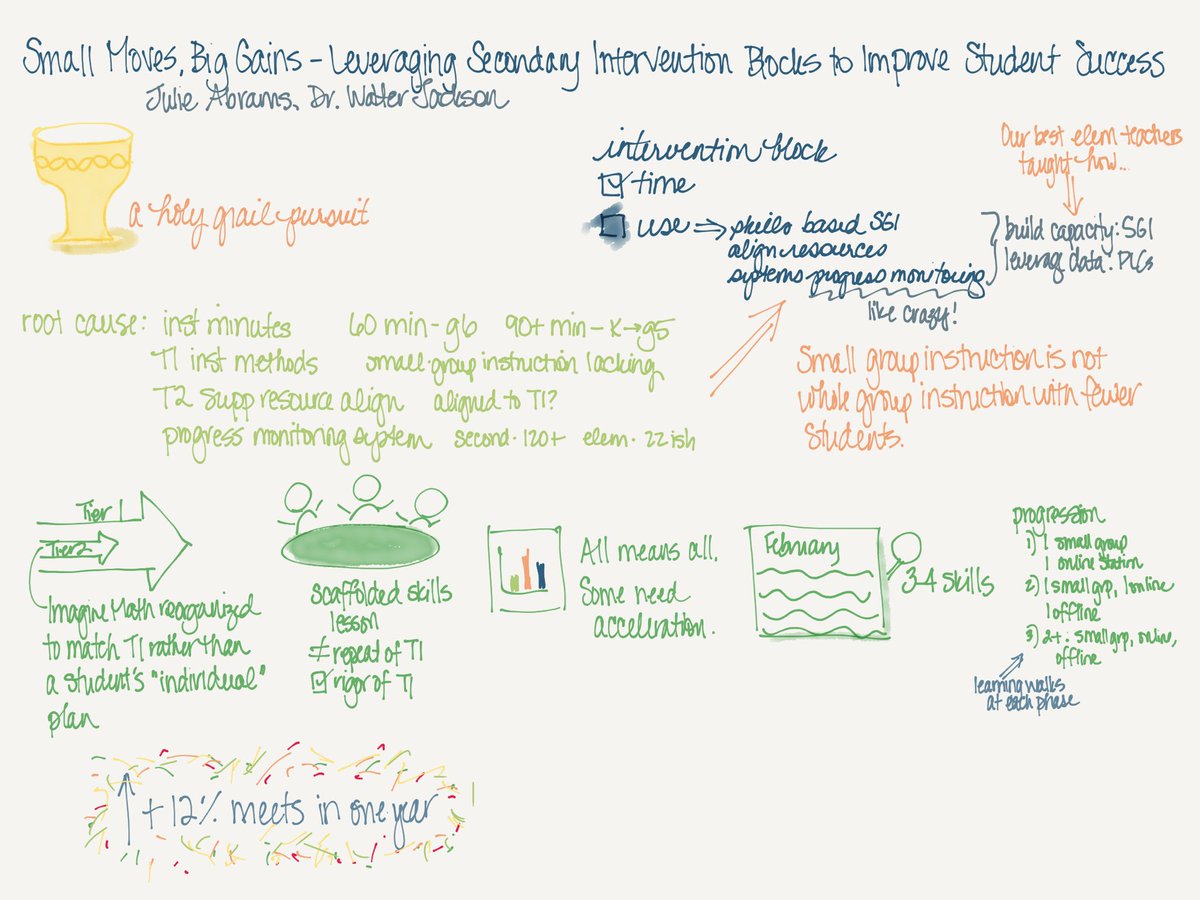 Small Moves, Big Gains - Leveraging Secondary Intervention Blocks to Improve Student Success
Julie Abrams, Dr. Walter Jackson
a holy grail pursuit
intervention block
time
use ⇒ skills based SGI
align resources
systems progress monitoring
like crazy!
Our best elem teachers
taught how...
build capacity: SGI
leverage data: PLCs
root cause: inst minutes 60 min - g6 90+ min - K→g5
T1 inst methods small-group instruction lacking
T2 supp resource align aligned to T1?
progress monitoring system second · 120+ elem · 22ish
Small group instruction is not
whole group instruction with fewer
students.
Tier 1
Tier 2
Imagine Math reorganized
to match T1 rather than
a student's "individual"
plan
scaffolded skills
lesson
≠ repeat of T1
rigor of T1
All means all.
Some need
acceleration.
February
3-4 skills
progression
1) 1 small group
1 online station
2) 1 small grp, 1 online
1 offline
3) 2+: small grp, online,
offline
learning walks
at each phase
+12% meets in one year